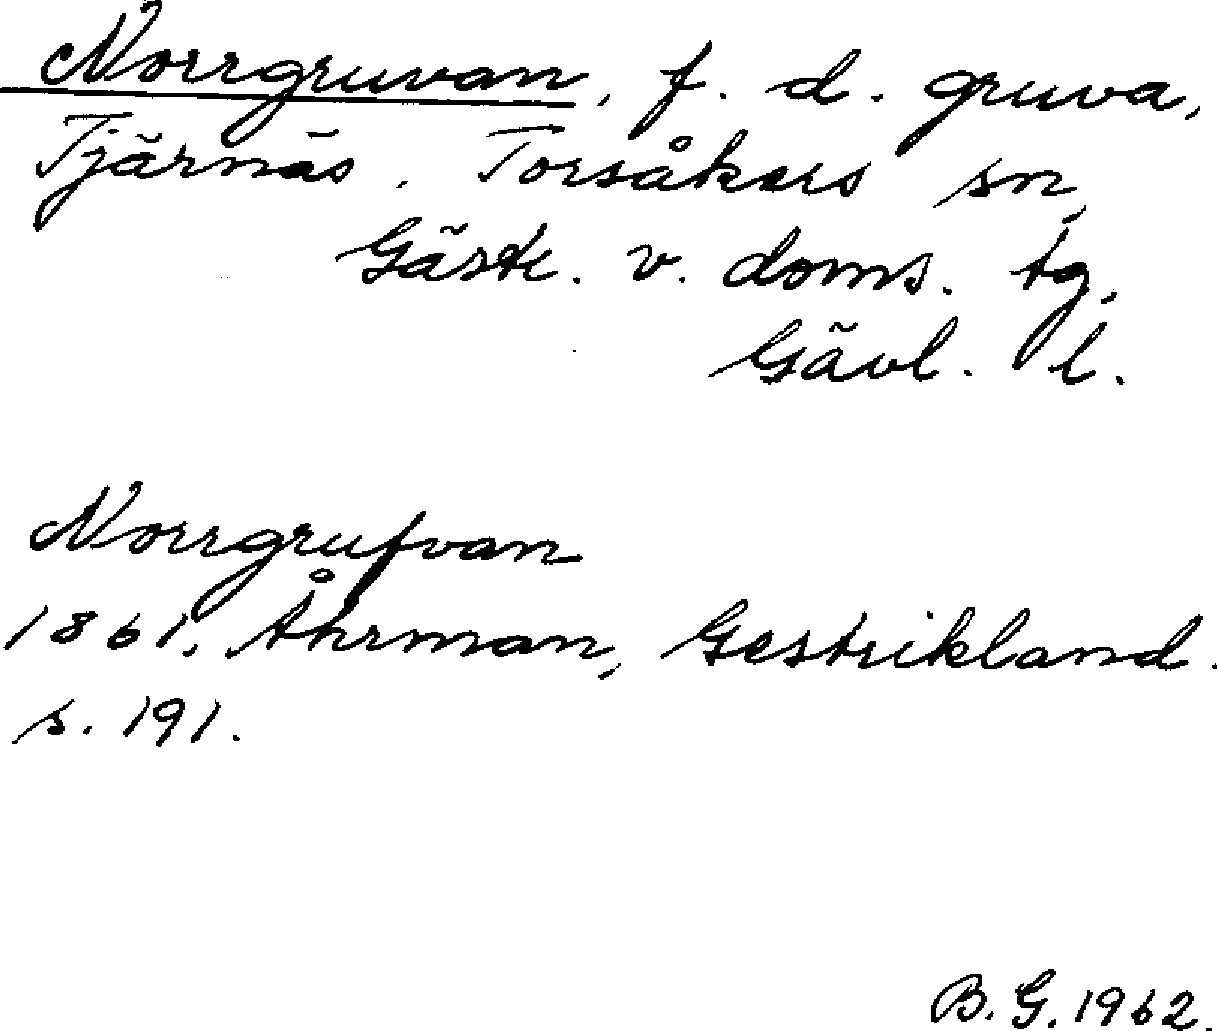 Norrgruvan, f. d. gruva,
Tjärnäs. Torsåkers sn,
Gästr. v. doms. tg,
Gävl. l.
Norrgrufvan
1861, Åhrman, Gestrikland.
s. 191.
B. G. 1962.